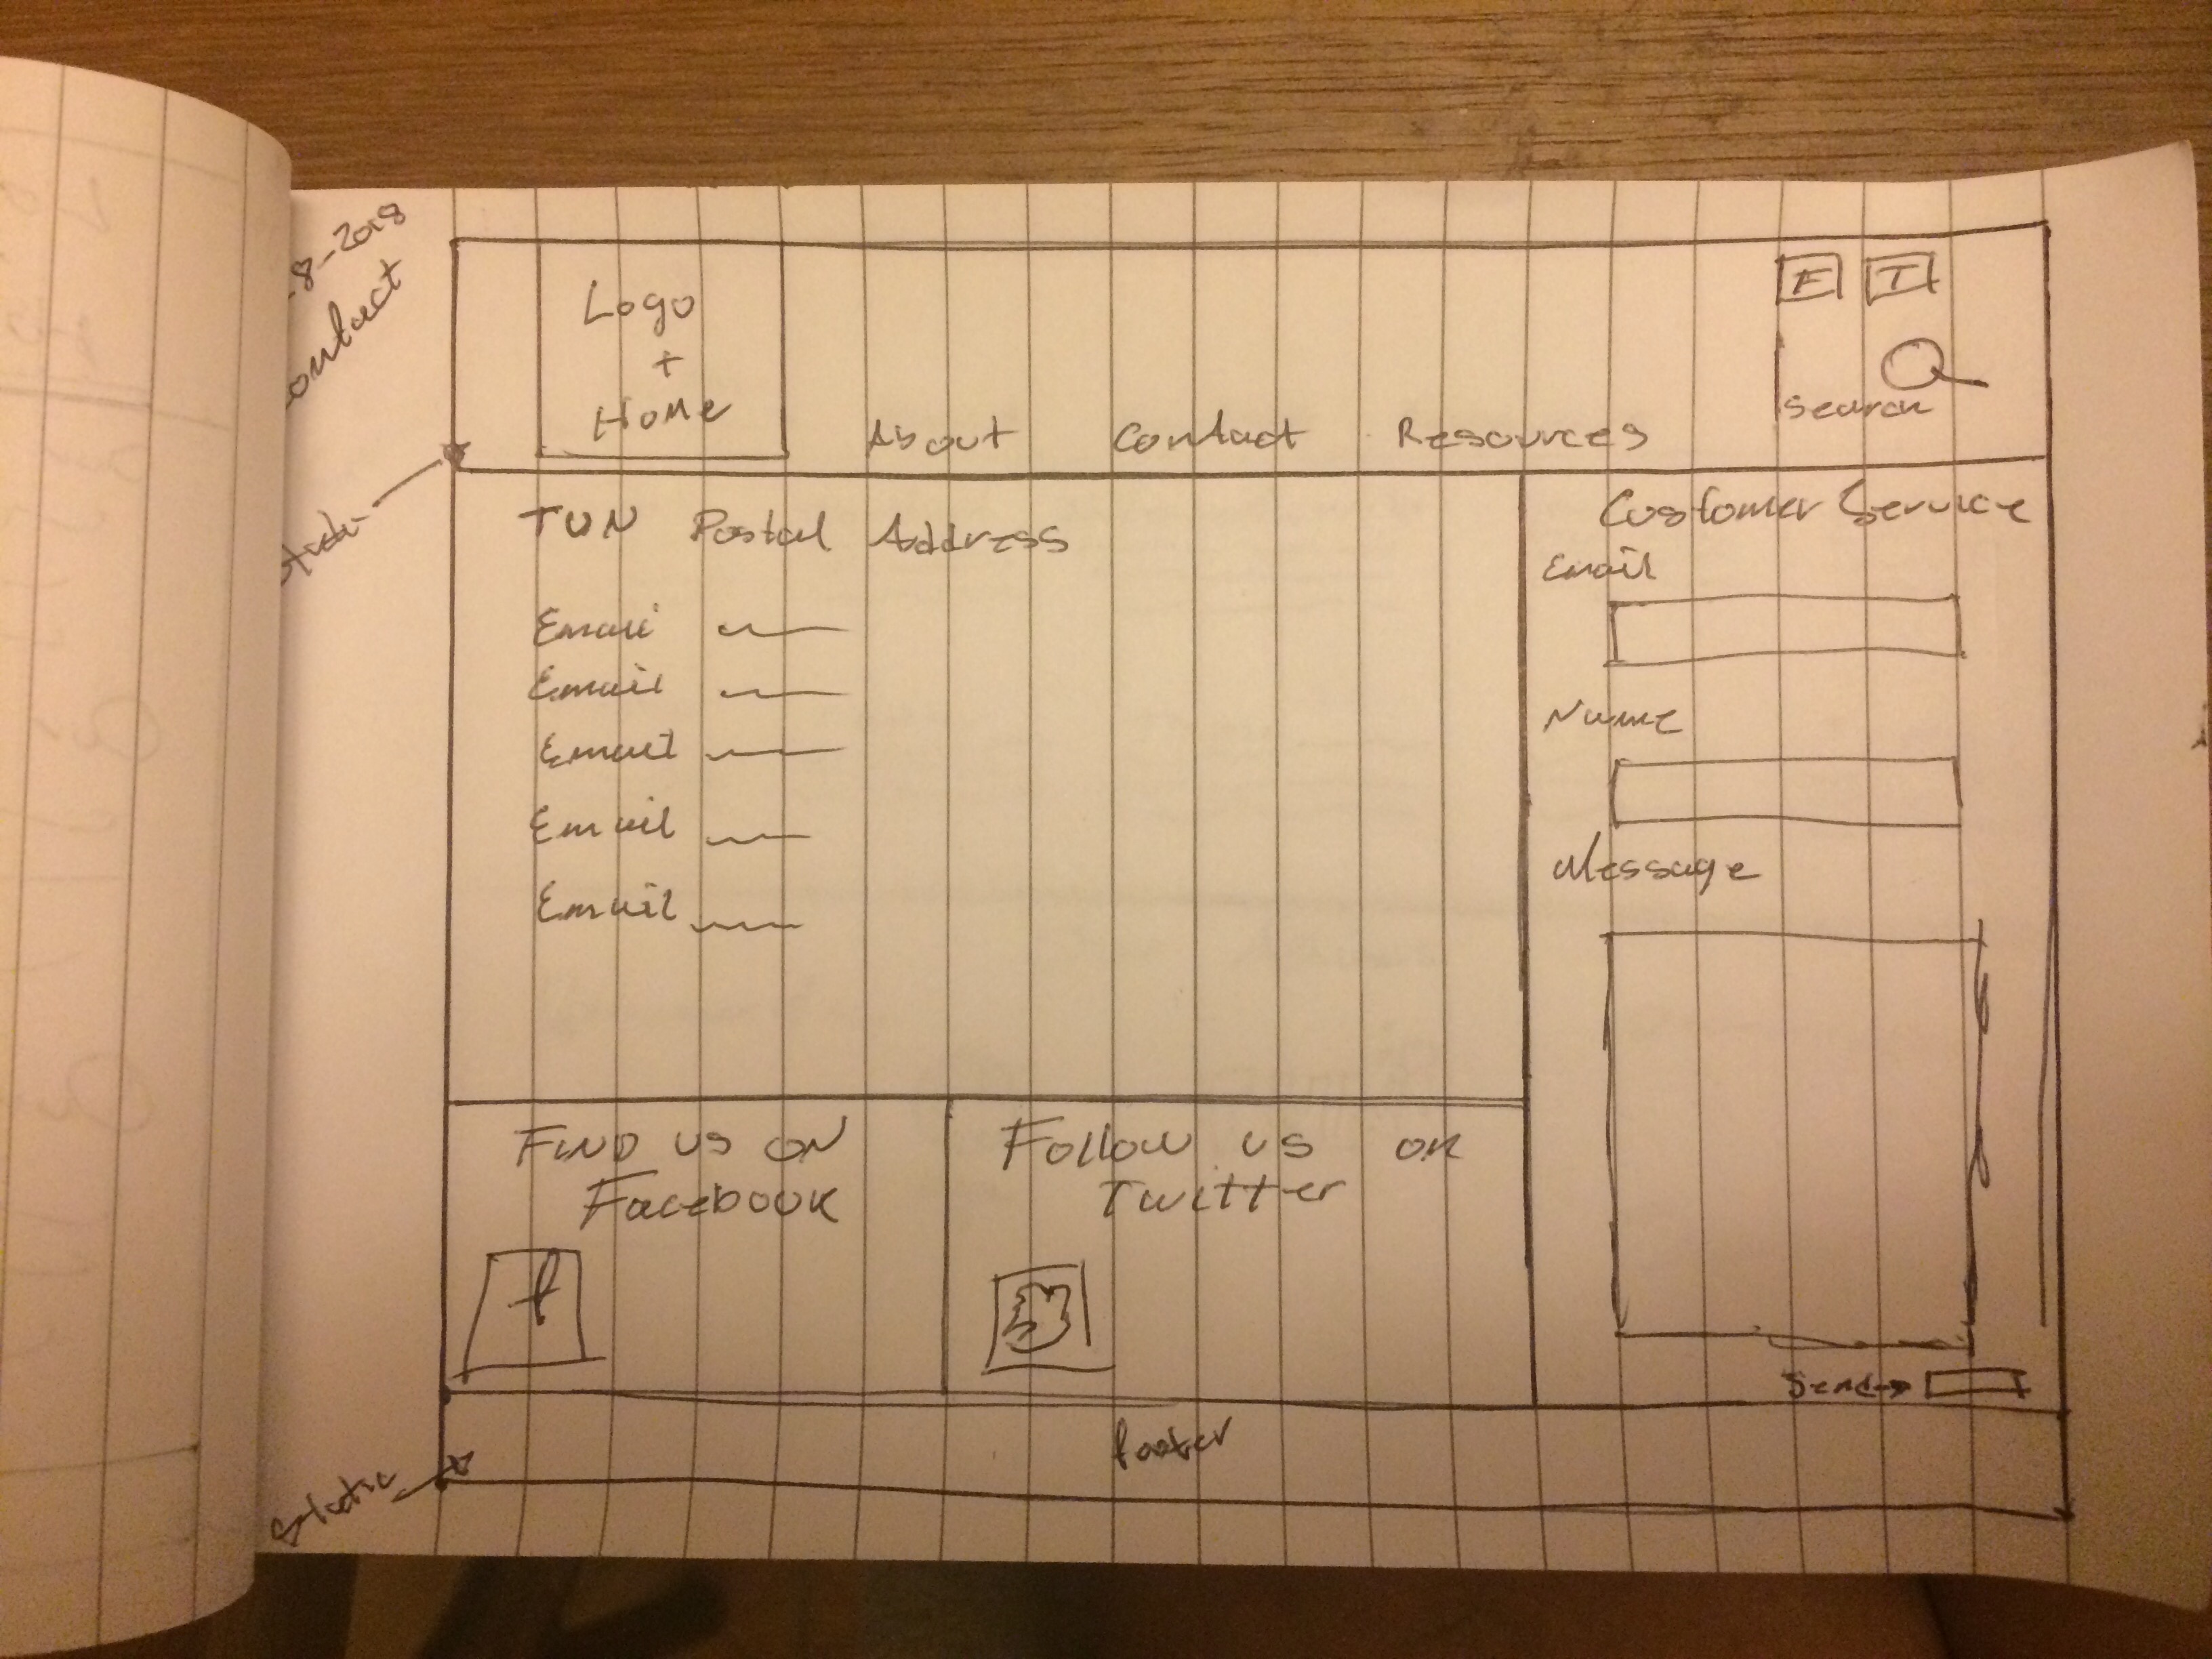 -8-2018
ontact
Logo
+
Home
F T
Search
About Contact Resources
TUN Postal Address
Email
Email
Email
Email
Email
Customer Service
Email
Name
Message
Send
Find us on
Facebook
f
Follow us on
Twitter
footer